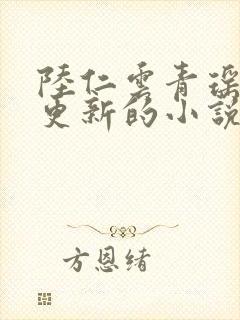 陸仁雲青瑶
更新的小說
方恩緒